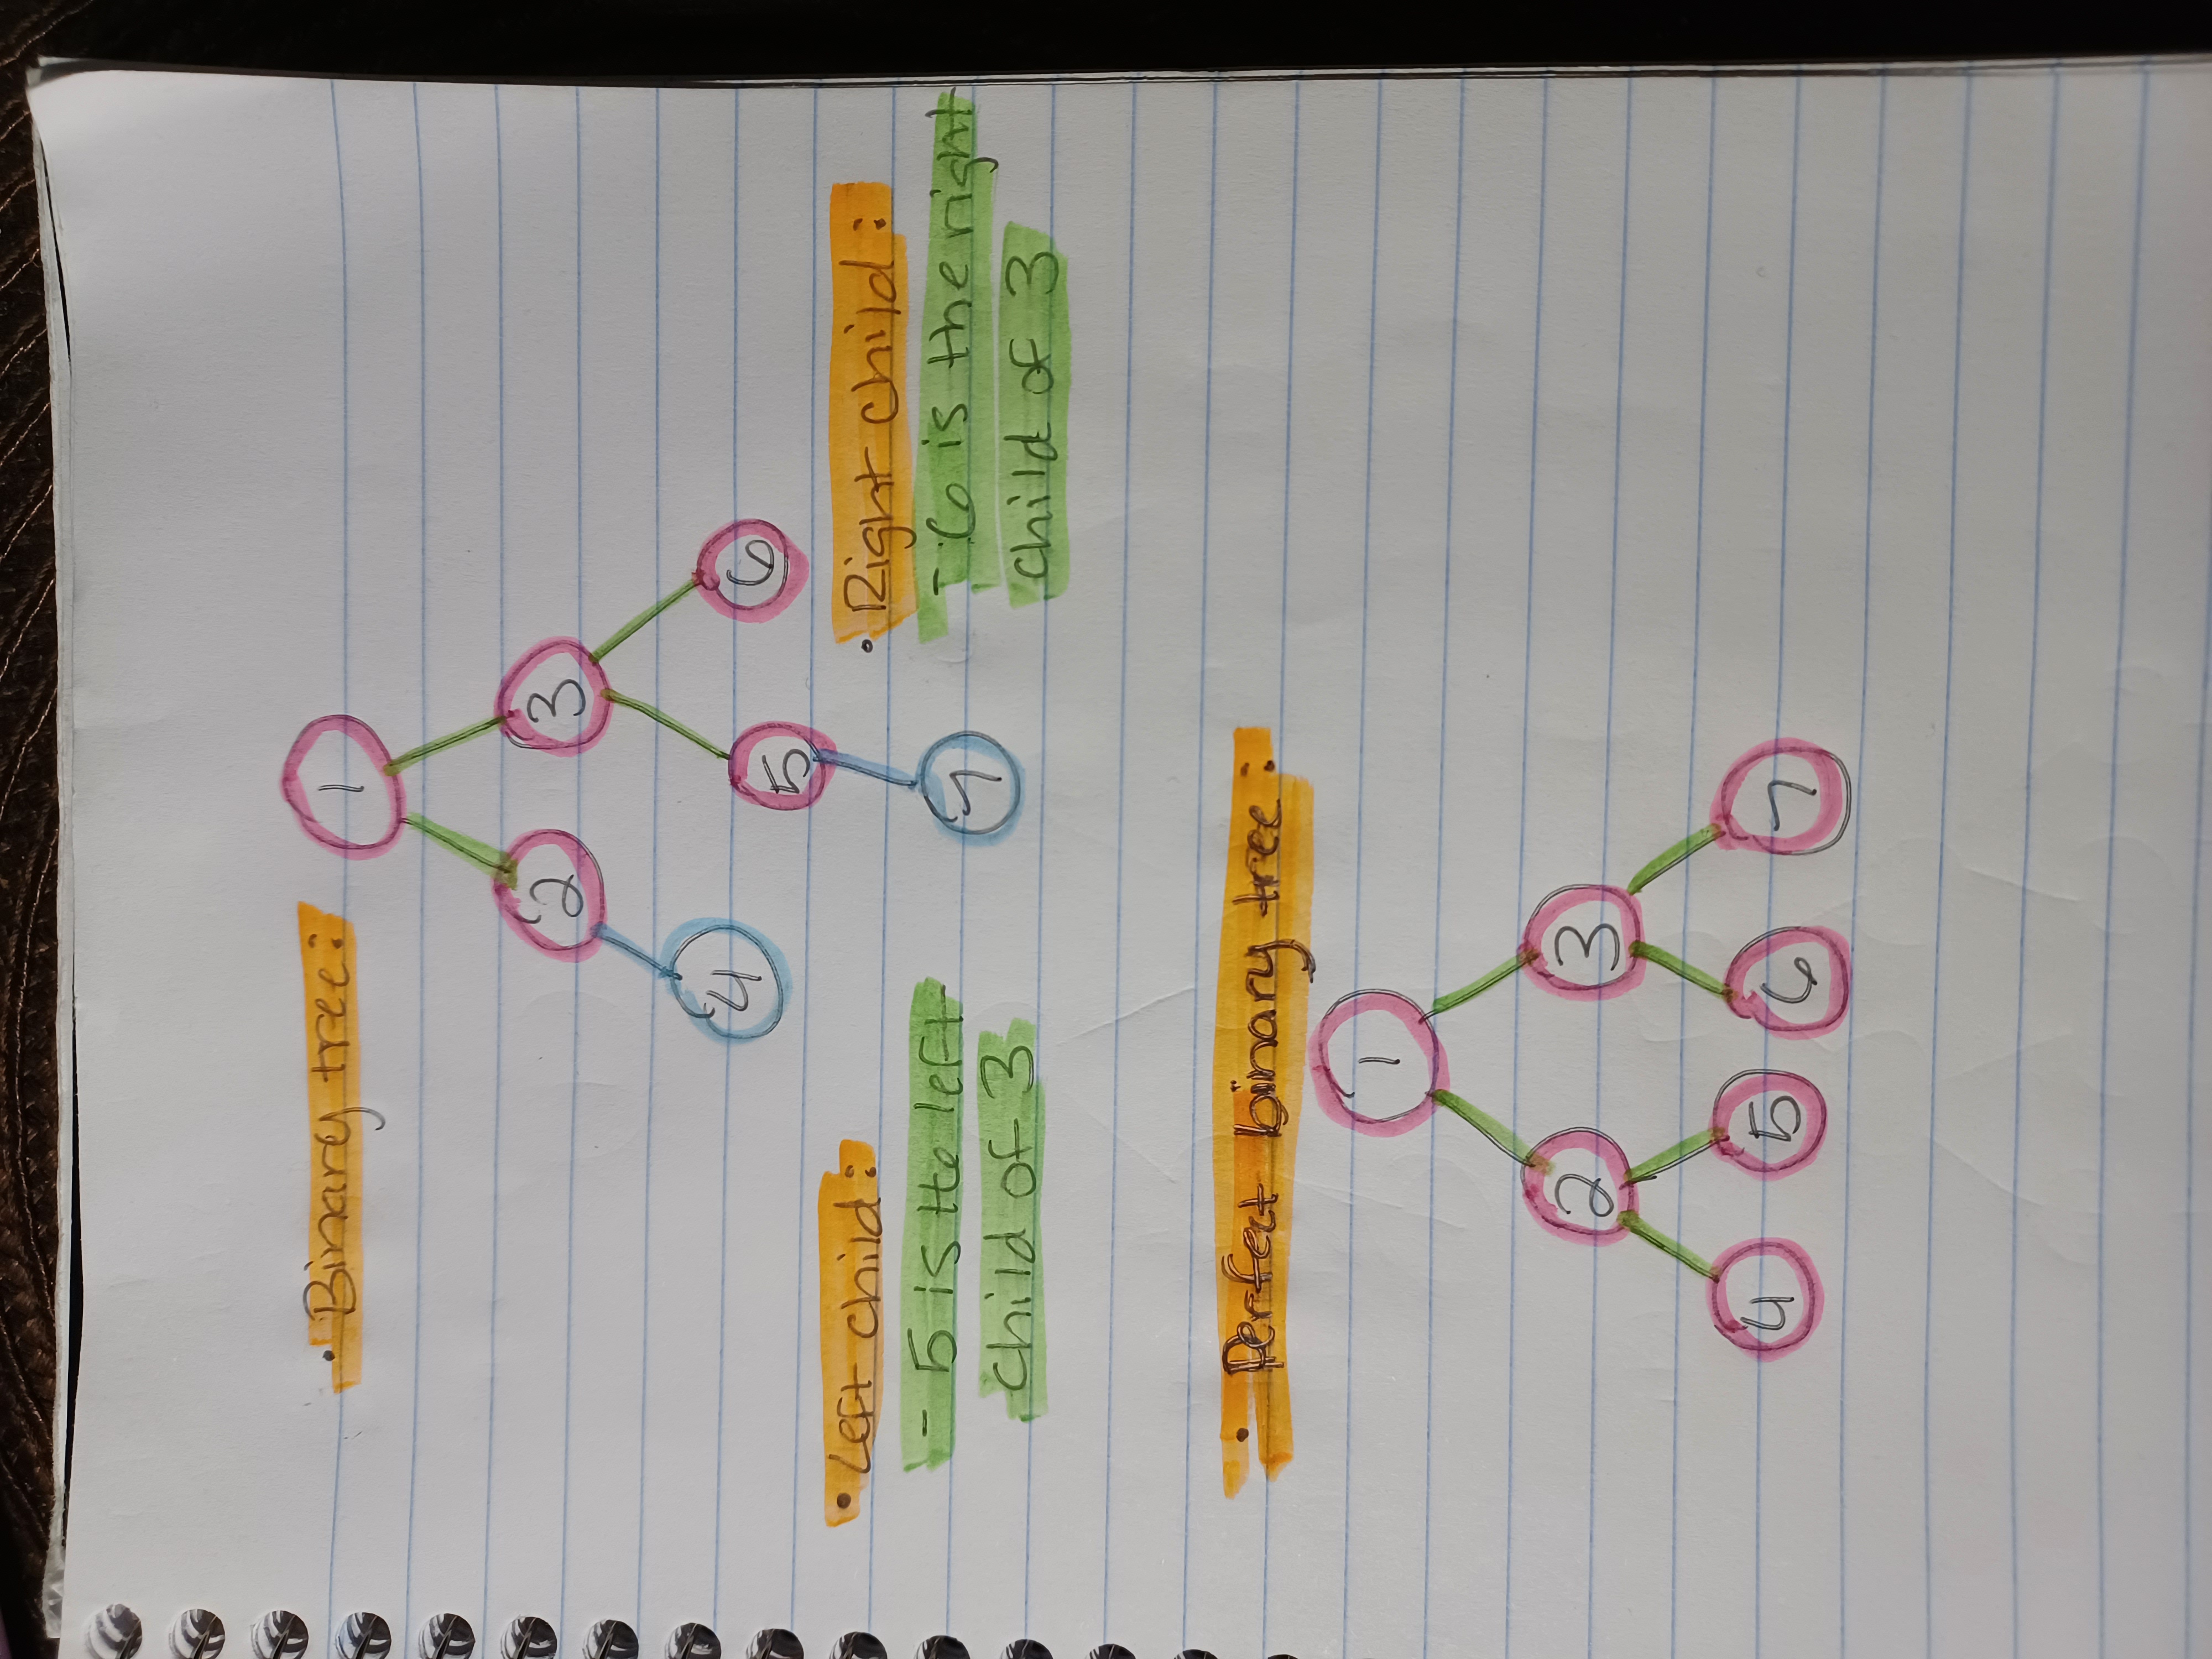 • Binary tree:
1
2 3
4 5 6
7
• Left child:
- 5 is the left
child of 3
• Right child:
- 6 is the right
child of 3
• Perfect binary tree:
1
2 3
4 5 6 7